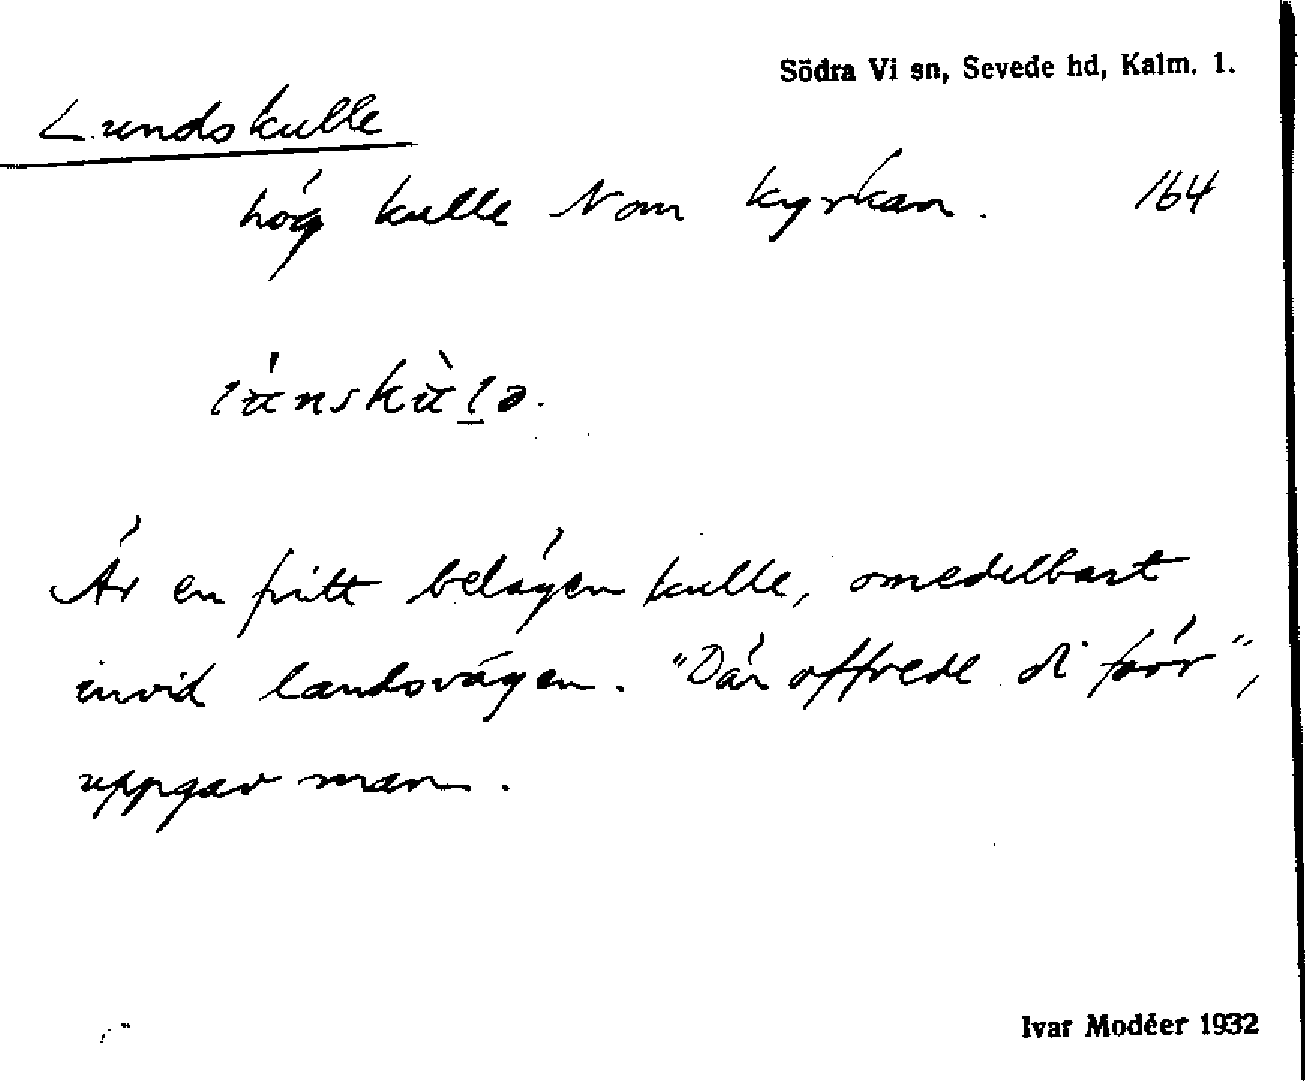 Södra Vi sn, Sevede hd, Kalm. l.
Lundskulle
hög kulle N om kyrkan. 164
Är en fritt belägen kulle, omedelbart
invid landsvägen. "Där offrede di förr",
uppgav man.
Ivar Modéer 1932